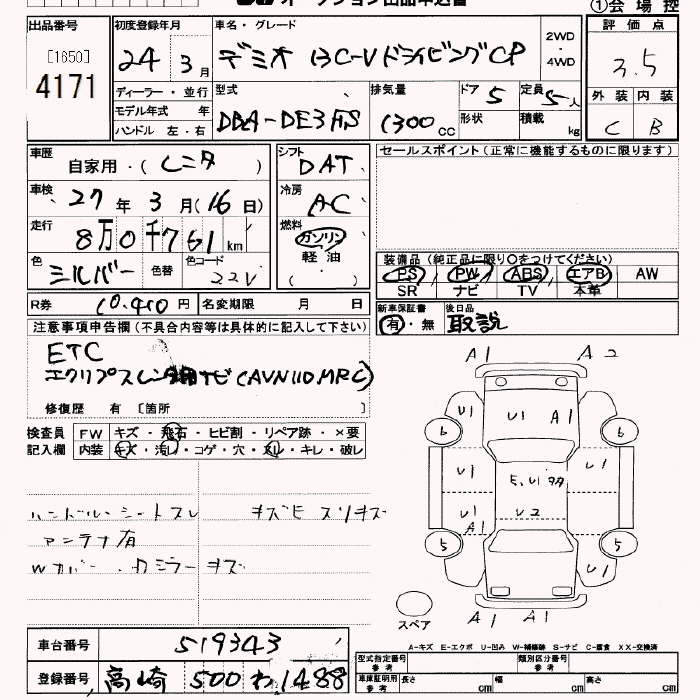 ①会場控
出品番号 初度登録年月 車名・グレード 評価点
[1650] 4171 24 3月 デミオ 13C-VドライビングCP 2WD・4WD 3.5
ディーラー・並行 型式 排気量 ドア 5 定員 5人 外装 内装
モデル年式 年 DBA-DE3FS 1300cc 形状 積載 kg C B
ハンドル 左・右
車歴 自家用・(レンタ) シフト DAT セールスポイント(正常に機能するものに限ります)
車検 27年 3月(16日) 冷房 AC
走行 8万0千761km 燃料 ガソリン
軽油
色 シルバー 色替 色コード 22V ( )
装備品(純正品に限り○をつけてください)
PS PW ABS エアB AW
SR ナビ TV 本革
R券 10,410円 名変期限 月 日 新車保証書 有・無 後日品 取説
注意事項申告欄(不具合内容等は具体的に記入して下さい)
ETC
エクリプス ナビ(AVN110MRC)
修復歴 有 [箇所 ]
検査員 FW キズ・飛石・ヒビ割・リペア跡・×要
記入欄 内装 キズ・汚レ・コゲ・穴・スレ・キレ・破レ
ハンドル・シートスレ キズヒ スリキズ
アンテナ有
Wカバー・カミラーキズ
A1 A2
U1 U1 A1
6 6
U1 E,U1 多 U1
U1 A1 U2
5 5
U1
スペア A1 A1
A-キズ E-エクボ U-凹み W-補修跡 S-サビ C-腐食 XX-交換済
車台番号 519343 型式指定番号 参考 類別区分番号 参考
登録番号 高崎 500 わ 1488 車庫証明用 参考 長さ cm 幅 cm 高さ cm